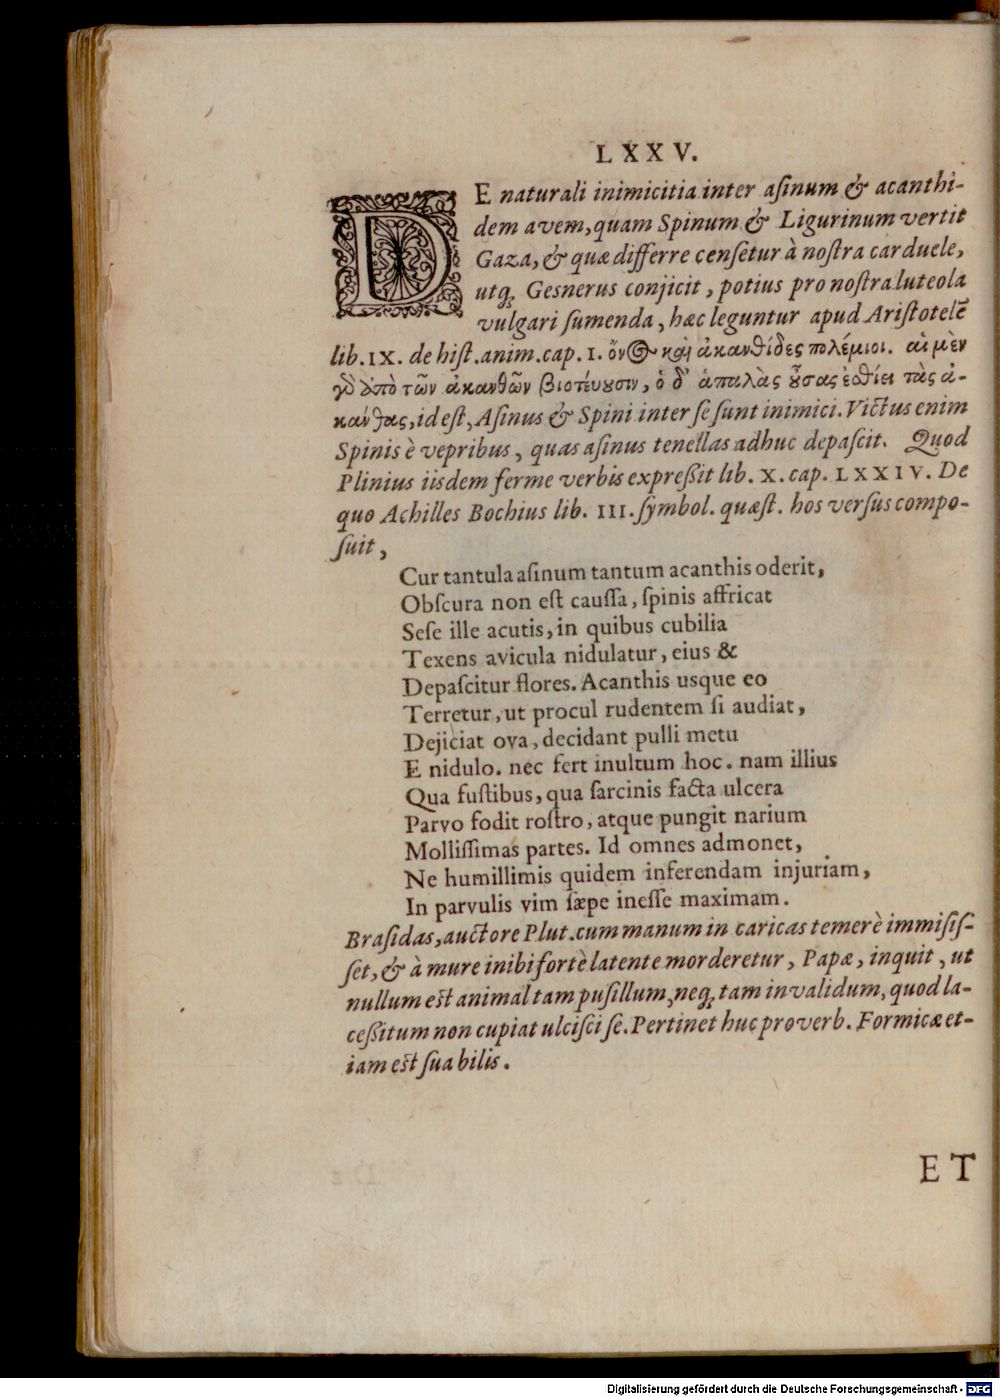 LXXV.
DE naturali inimicitia inter aſinum & acanthi-
dem avem, quam Spinum & Ligurinum vertit
Gaza, & quæ differre cenſetur à noſtra carduele,
utq; Gesnerus conjicit, potius pro noſtra luteola
vulgari ſumenda, hæc leguntur apud Ariſtotelē
lib. IX. de hiſt. anim. cap. I. ὄνος καὶ ἀκανθίδες πολέμιοι. αἱ μὲν
γὸ ἀπὸ τῶν ἀκανθῶν βιοτεύουσιν, ὁ δ' ἁπαλὰς οὔσας ἐσθίει τὰς ἀ-
κάνθας, id eſt, Aſinus & Spini inter ſe ſunt inimici. Victus enim
Spinis è vepribus, quas aſinus tenellas adhuc depaſcit. Quod
Plinius iisdem ferme verbis expreßit lib. X. cap. LXXIV. De
quo Achilles Bochius lib. III. ſymbol. quæſt. hos verſus compo-
ſuit,
Cur tantula aſinum tantum acanthis oderit,
Obſcura non eſt cauſſa, ſpinis affricat
Seſe ille acutis, in quibus cubilia
Texens avicula nidulatur, eius &
Depaſcitur flores. Acanthis usque eo
Terretur, ut procul rudentem ſi audiat,
Dejiciat ova, decidant pulli metu
E nidulo. nec fert inultum hoc. nam illius
Qua fuſtibus, qua ſarcinis facta ulcera
Parvo fodit roſtro, atque pungit narium
Molliſſimas partes. Id omnes admonet,
Ne humillimis quidem inferendam injuriam,
In parvulis vim ſæpe ineſſe maximam.
Braſidas, auctore Plut. cum manum in caricas temerè immiſiſ-
ſet, & à mure inibi fortè latente morderetur, Papæ, inquit, ut
nullum eſt animal tam puſillum, neq; tam invalidum, quod la-
ceßitum non cupiat ulciſci ſe. Pertinet huc proverb. Formicæ et-
iam eſt ſua bilis.
ET
Digitalisierung gefördert durch die Deutsche Forschungsgemeinschaft - DFG